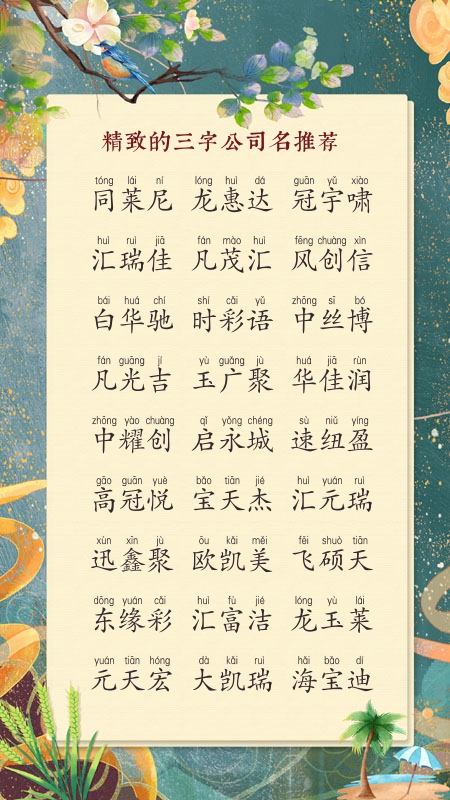 精致的三字公司名推荐
tóng lái ní lóng huì dá guān yǔ xiào
同莱尼 龙惠达 冠宇啸
huì ruì jiā fán mào huì fēng chuàng xìn
汇瑞佳 凡茂汇 风创信
bái huá chí shí cǎi yǔ zhōng sī bó
白华驰 时彩语 中丝博
fán guāng jí yù guǎng jù huá jiā rùn
凡光吉 玉广聚 华佳润
zhōng yào chuàng qǐ yǒng chéng sù niǔ yíng
中耀创 启永城 速纽盈
gāo guān yuè bǎo tiān jié huì yuán ruì
高冠悦 宝天杰 汇元瑞
xùn xīn jù ōu kǎi měi fēi shuò tiān
迅鑫聚 欧凯美 飞硕天
dōng yuán cǎi huì fù jié lóng yù lái
东缘彩 汇富洁 龙玉莱
yuán tiān hóng dà kǎi ruì hǎi bǎo dí
元天宏 大凯瑞 海宝迪